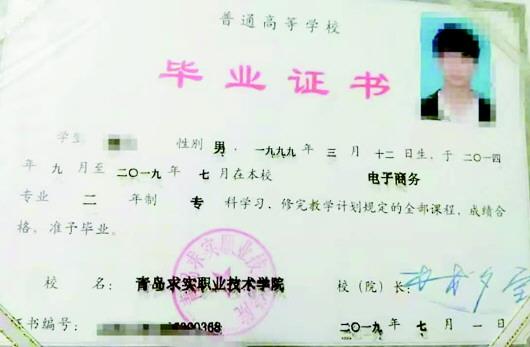 普通高等学校
毕业证书
学生 性别 男，一九九九 年 三 月 十二 日生，于 二〇一四
年 九 月至 二〇一九 年 七 月在本校 电子商务
专业 二 年制 专 科学习，修完教学计划规定的全部课程，成绩合
格，准予毕业。
校 名：青岛求实职业技术学院 校（院）长：
证书编号： 200368 二〇一九 年 七 月 一 日